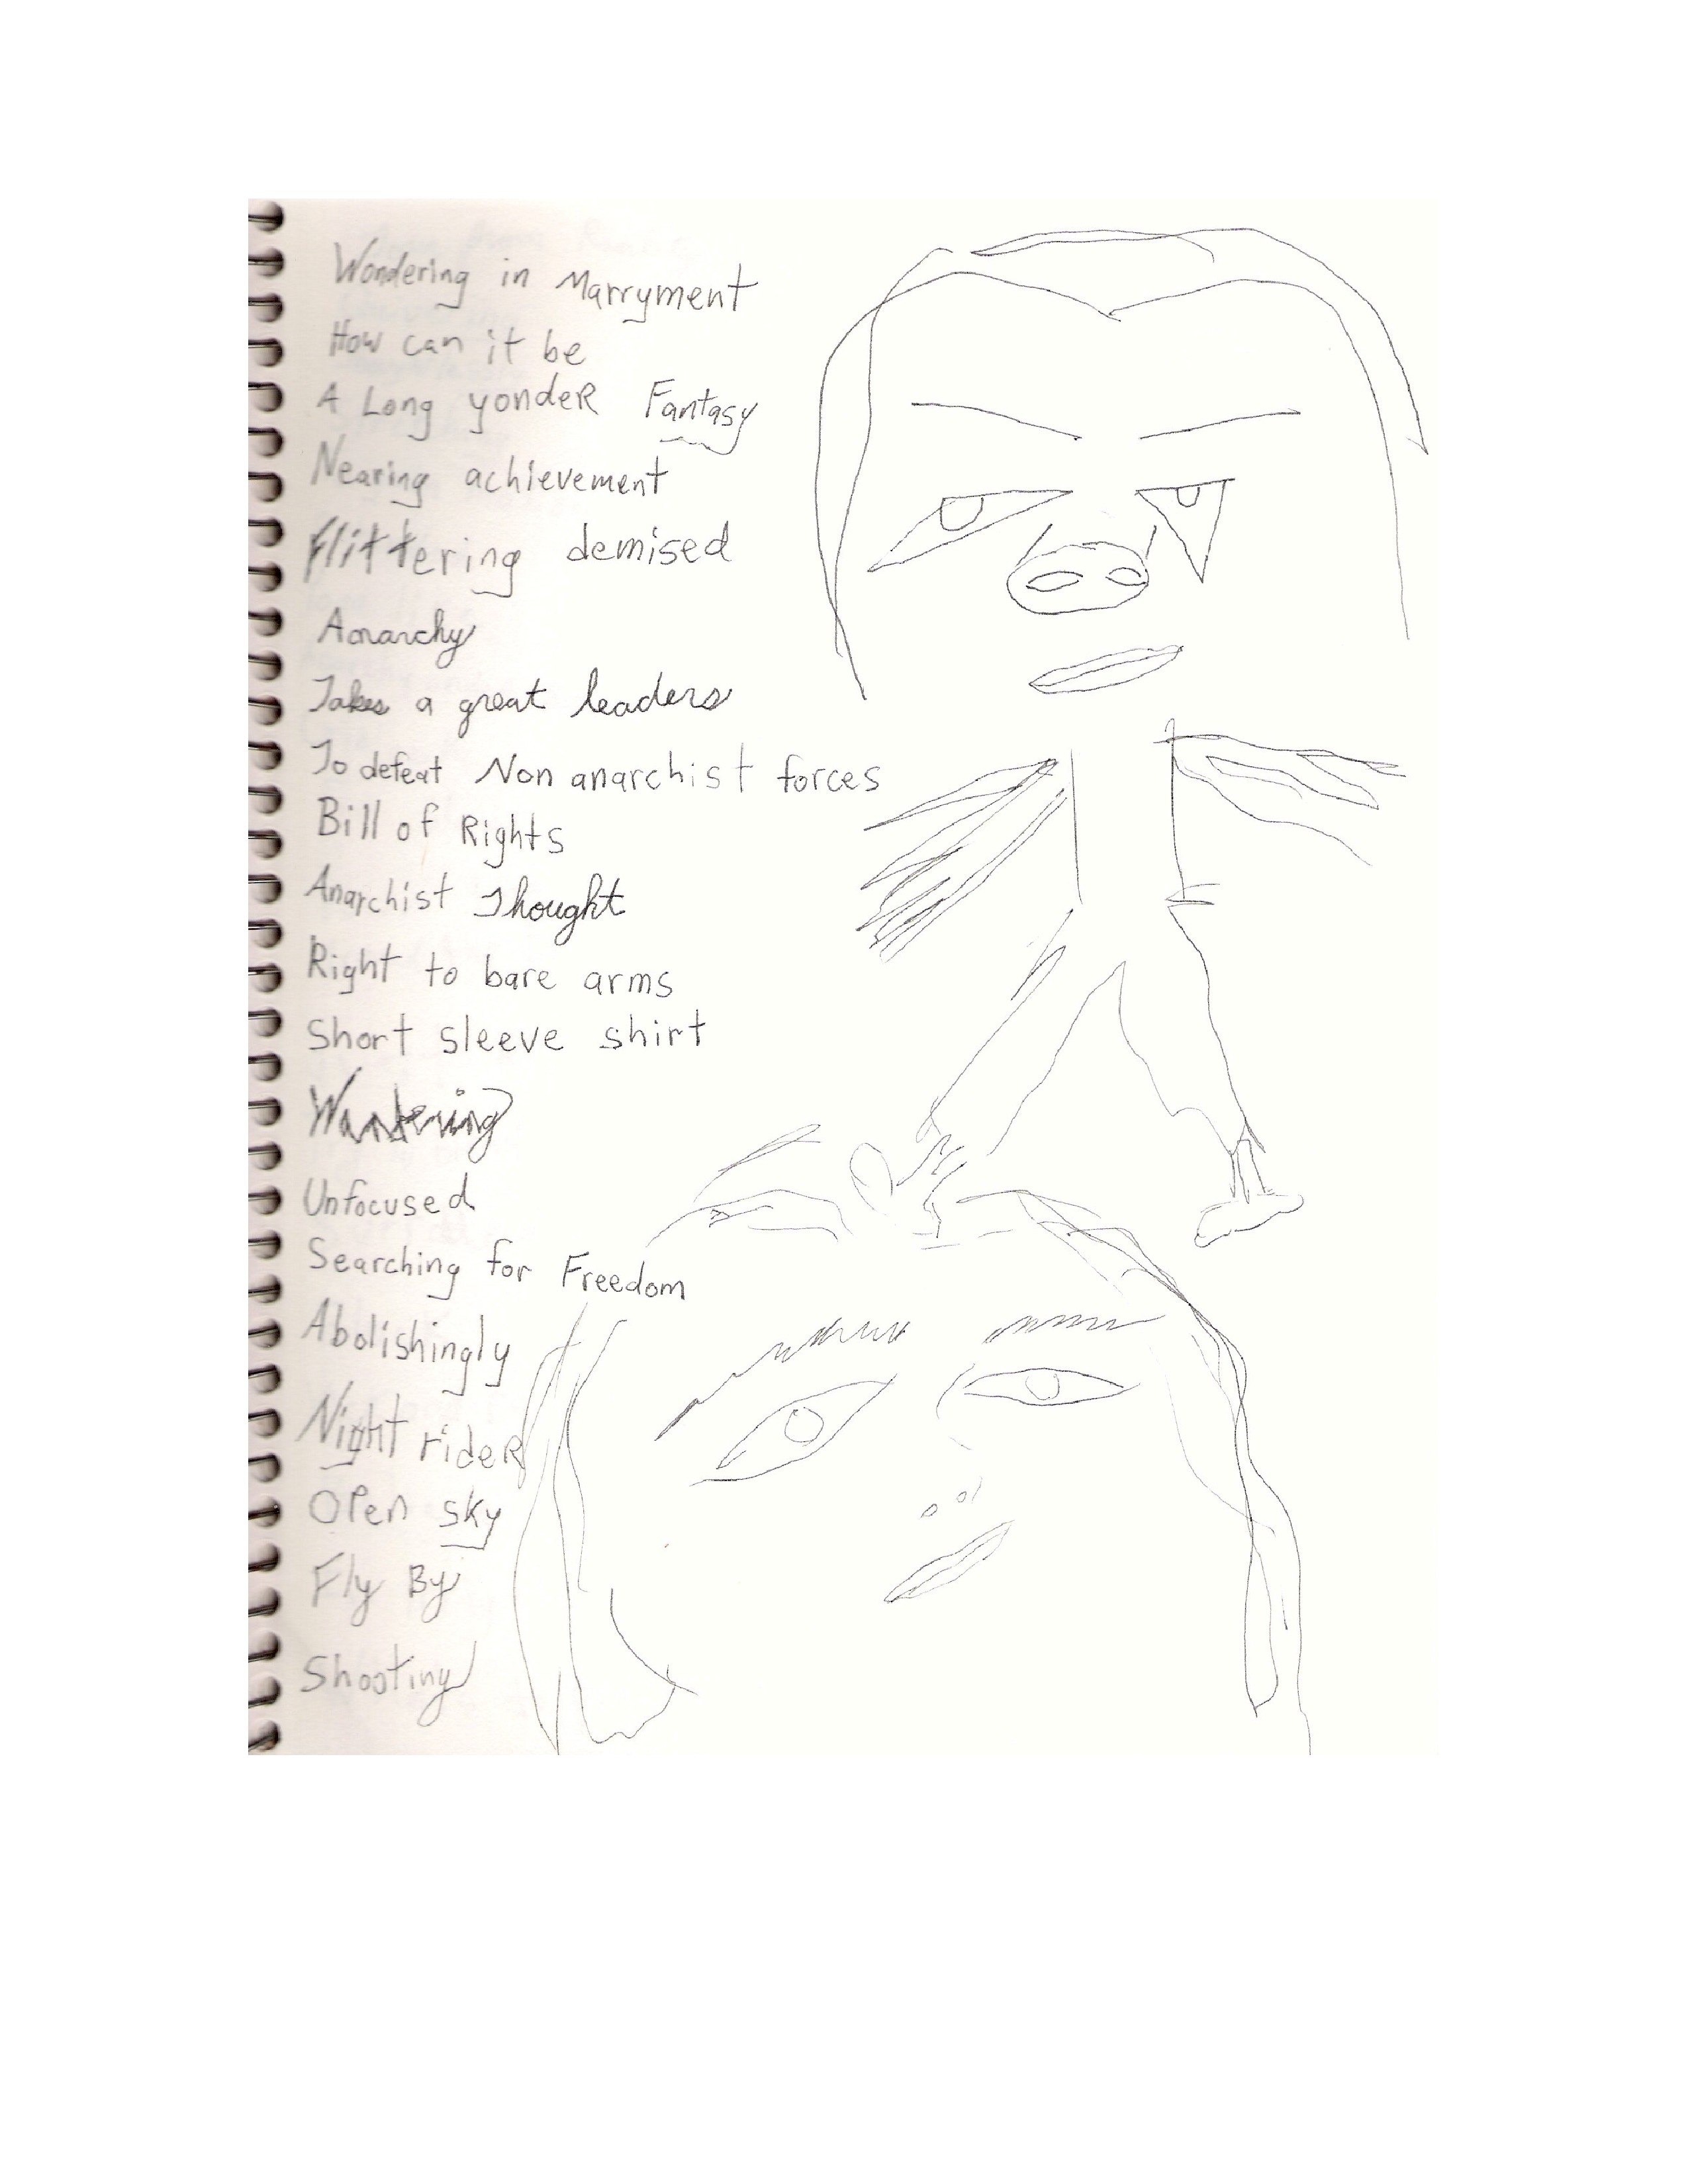 Wondering in Marryment
How can it be
A Long yonder Fantasy
Nearing achievement
Flittering demised
Anarchy
Takes a great leaders
To defeat Non anarchist forces
Bill of Rights
Anarchist Thought
Right to bare arms
Short sleeve shirt
Wandering
Unfocused
Searching for Freedom
Abolishingly
Night rider
Open sky
Fly By
Shooting